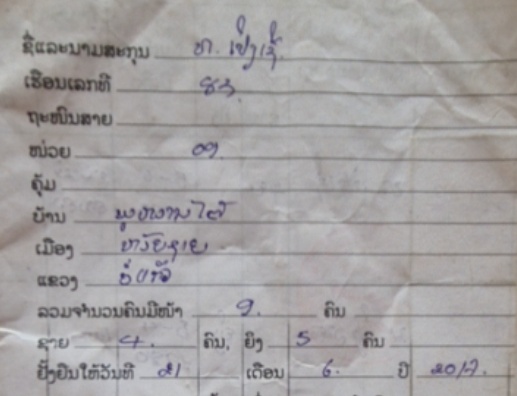 ຊື່ແລະນາມສະກຸນ ທ. ເຢັງເຊ້ໍ.
ເຮືອນເລກທີ 83.
ຖະໜົນສາຍ
ໜ່ວຍ 09.
ຄຸ້ມ
ບ້ານ ພູວານໃຕ້
ເມືອງ ຫ້ວຍຊາຍ
ແຂວງ ບໍ່ແກ້ວ
ລວມຈຳນວນຄົນມີໜ້າ 9. ຄົນ
ຊາຍ 4. ຄົນ, ຍິງ 5 ຄົນ
ຢັ້ງຢືນໃຫ້ວັນທີ 21 ເດືອນ 6. ປີ 2017.